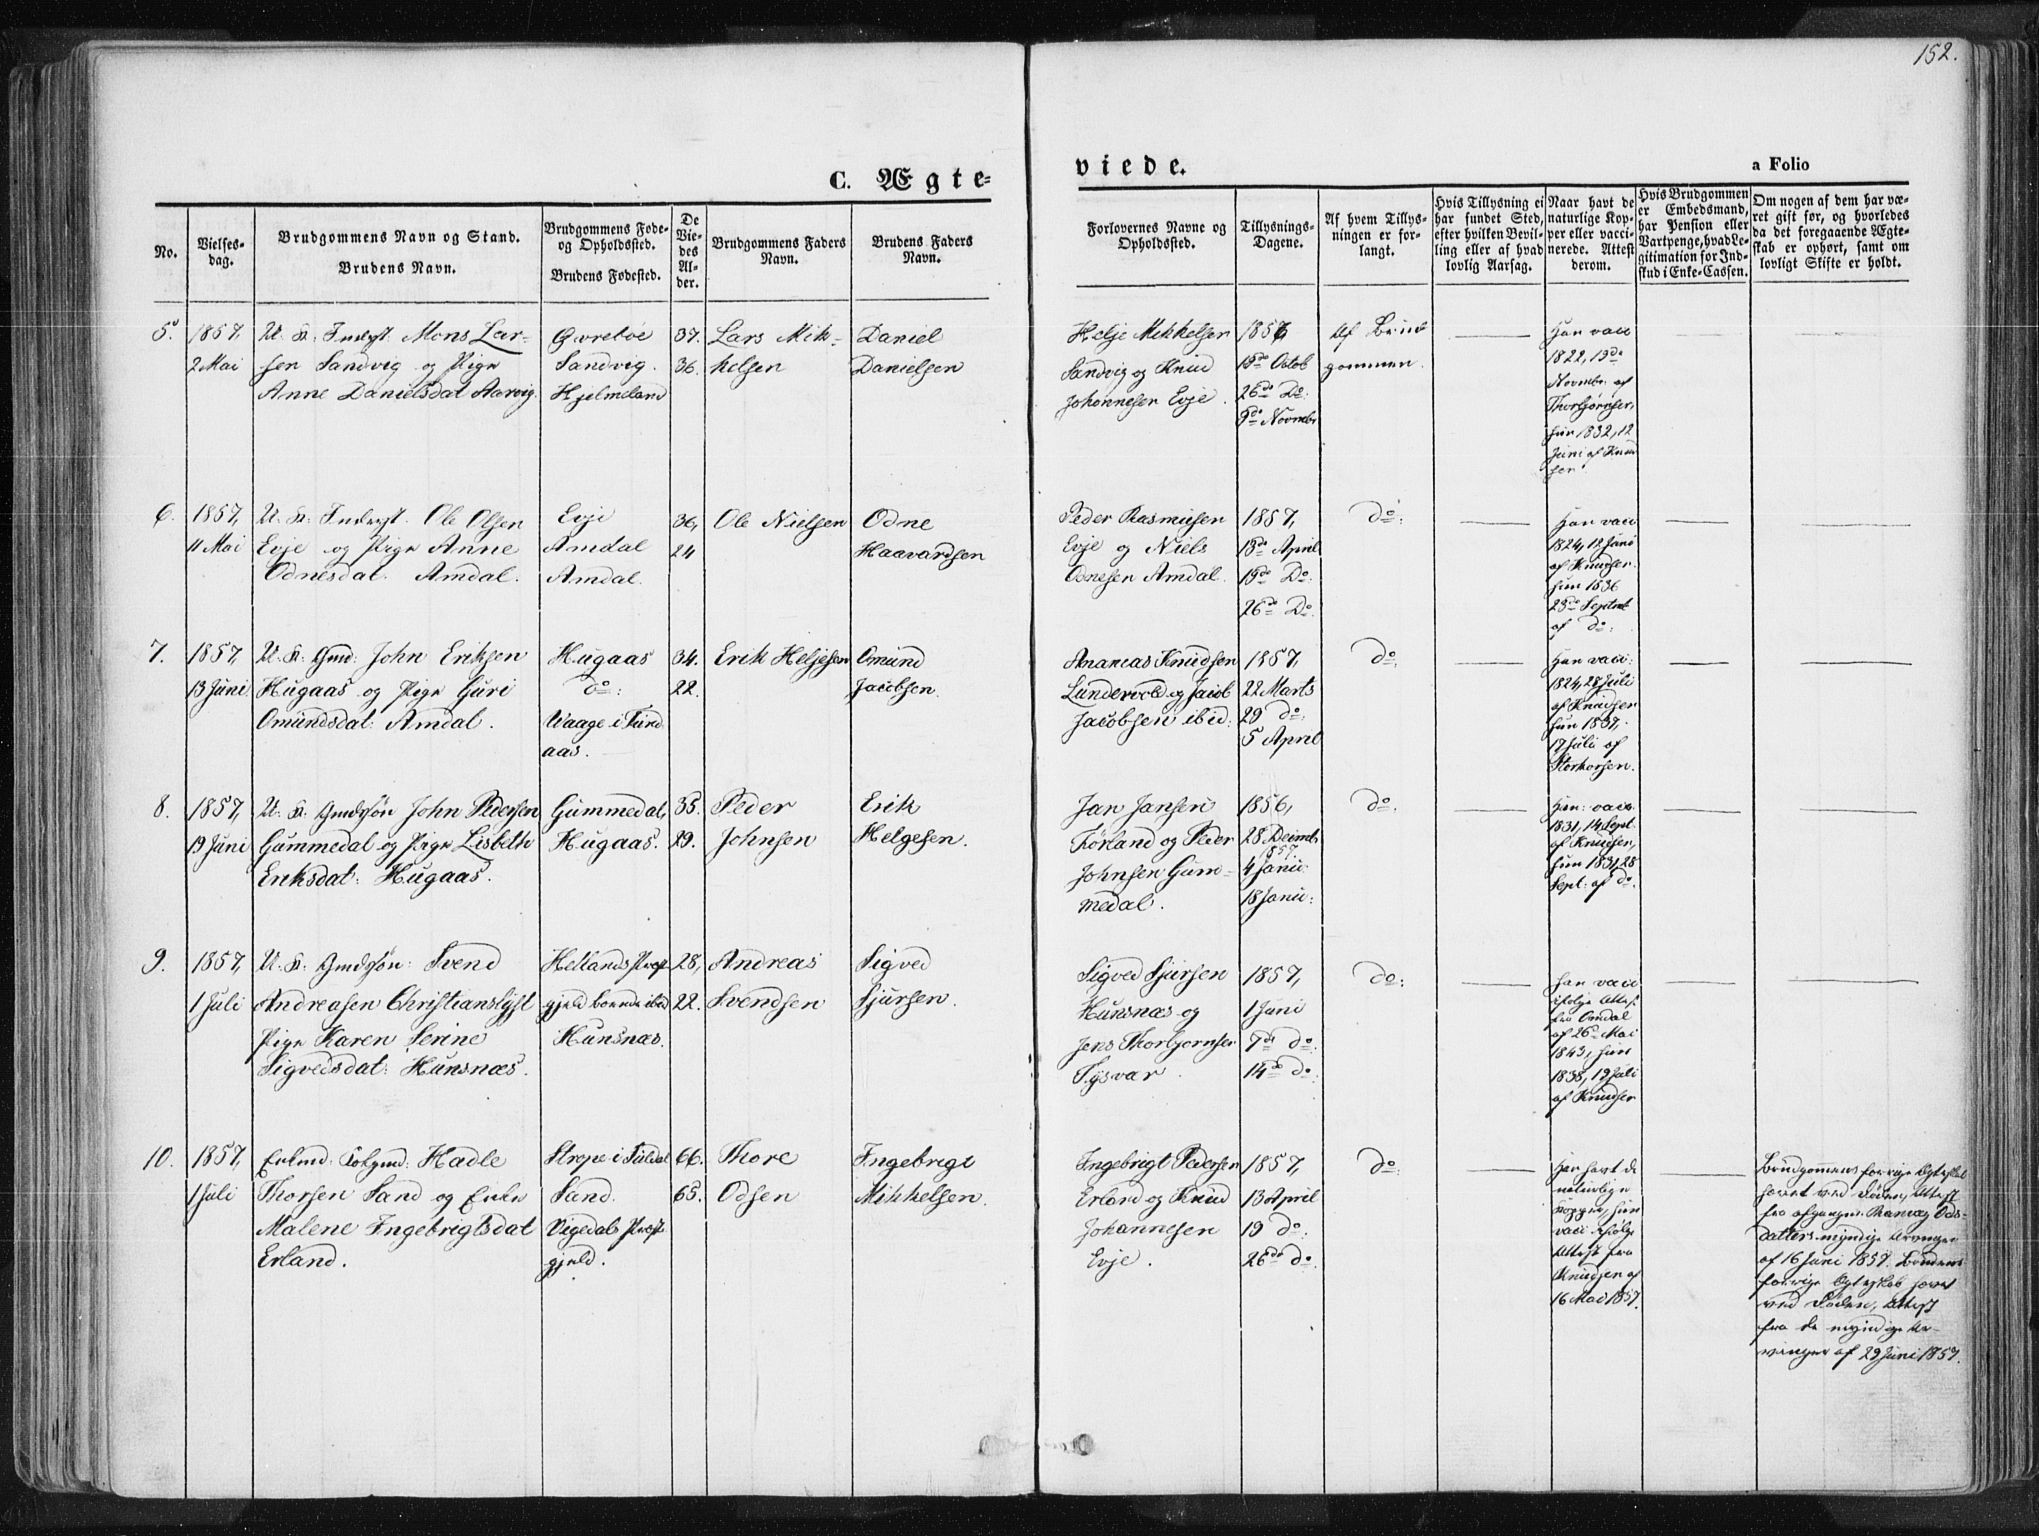 152.
C. Ægte-
viede.
a Folio
No.
Vielses-
dag.
Brudgommens Navn og Stand.
Brudens Navn.
Brudgommens Føde-
og Opholdssted.
Brudens Fødested.
De
Vie-
des
Al-
der.
Brudgommens Faders
Navn.
Brudens Faders
Navn.
Forlovernes Navne og
Opholdssted.
Tillysnings-
Dagene.
Af hvem Tillys-
ningen er for-
langt.
Hvis Tillysning ei
har fundet Sted,
efter hvilken Bevil-
ling eller af hvad
lovlig Aarsag.
Naar havt de
naturlige Kop-
per eller vacci-
nerede. Attest
derom.
Hvis Brudgommen
er Embedsmand,
har Pension eller
Vartpenge, hvad Le-
gitimation for Ind-
skud i Enke-Cassen.
Om nogen af dem har væ-
ret gift før, og hvorledes
da det foregaaende Ægte-
skab er ophørt, samt om
lovligt Skifte er holdt.
5. 1857, U. K. Inderst. Mons Lar- Øvrebøe 37. Lars Mik- Daniel
2 Mai sen Sandvig og Pige Sandvig. 36. kelsen Danielsen
Anne Danielsdat Aarvig. Hjelmeland
Helje Mikkelsen 1856 Af Brud Han vacc
Sandvig og Knud Octob gommen. 1822, 13de
Johannesen Evje. 26de Do: Novmbr. af
Novmbr Thorbjørnsen,
hun 1832, 12
Juni af Knud
sen
6. 1857, U. K. Inderst. Ole Olsen Evje 36, Ole Nielsen Odne
11 Mai Evje og Pige Anne Amdal 24 Haavardsen
Odnesdat. Amdal. Amdal.
Peder Rasmusen 1857, do: Han vacc
Evje og Niels April 1824, 12 Juni
Odnesen Amdal. 19de Do: af Knudsen.
26de Do. hun 1836
23de Septmbr
af do:
7. 1857, U. K. Gmd: John Eriksen Hugaas 34. Erik Heljesen Omund
13 Juni Hugaas og Pige Guri do: 22. Jacobsen.
Omundsdat: Amdal. Vaage i Tind
aas.
Ananias Knudsen 1857, do: Han vacc:
Lundevold og Jacob 22 Marts 1824, 28 Juli
Jacobsen ibid: 29 do: af Knudsen
5 April hun 1837,
17 Juli af
8. 1857, U. K. Gmdsøn John Pedersen Gummedal, 35. Peder Erik
19 Juni Gummedal og Pige Lisbeth Hugaas. 29. Johnsen Helgesen.
Eriksdat: Hugaas.
Jan Jansen 1856, do. Han: vacc:
Førland og Peder 28 Decmb 1831, 14 Sept
1857
Johnsen Gum- 4 Janu: af Knudsen,
medal. 18 Janu: hun 1831, 28
Sept: af do.
9. 1857, U. K. Gmdsøn: Svend Hetlands Præst 28, Andreas Sigved
1 Juli Andreasen Christianslyst gjeld boende ibid 22. Svendsen Sjursen.
Pige Karen Serine Hunsnæs.
Sigvedsdat: Hunsnæs.
Sigved Sjursen 1857, do: Han vacc
Hunsnæs og 1 Juni ifølge Attest
Jens Thorbjørnsen 7de do. fra Omdal
Tysvær. 14de do: af 26de Mai
1843, hun
1838, 19 Juli
af Knudsen
10. 1857, Enkmd: Kaarmd: Hadle Strope i Suldal 66. Thore Ingebrigt
1 Juli Thorsen Sand og Enke Sand. 65. Odsen Mikkelsen.
Malene Ingebrigtsdat Vigedals Præst
Erland. gjeld.
Ingebrigt Pedersen 1857, do: Han havt de Brudgommens forrige Ægteskab
Erland og Knud 13 April naturlige hævet ved Døden, Attest
Johannesen 19 do: Kopper, hun fra afgangne Ods-
Evje. 26de do: vacc ifølge datters myndige Arvinger
Attest fra af 16 Juni 1857. Brudens
Knudsen af forrige Ægteskab hævet
16 Mai 1857. ved Døden, Attest
fra de myndige Ar-
vinger af 29 Juni 1857.